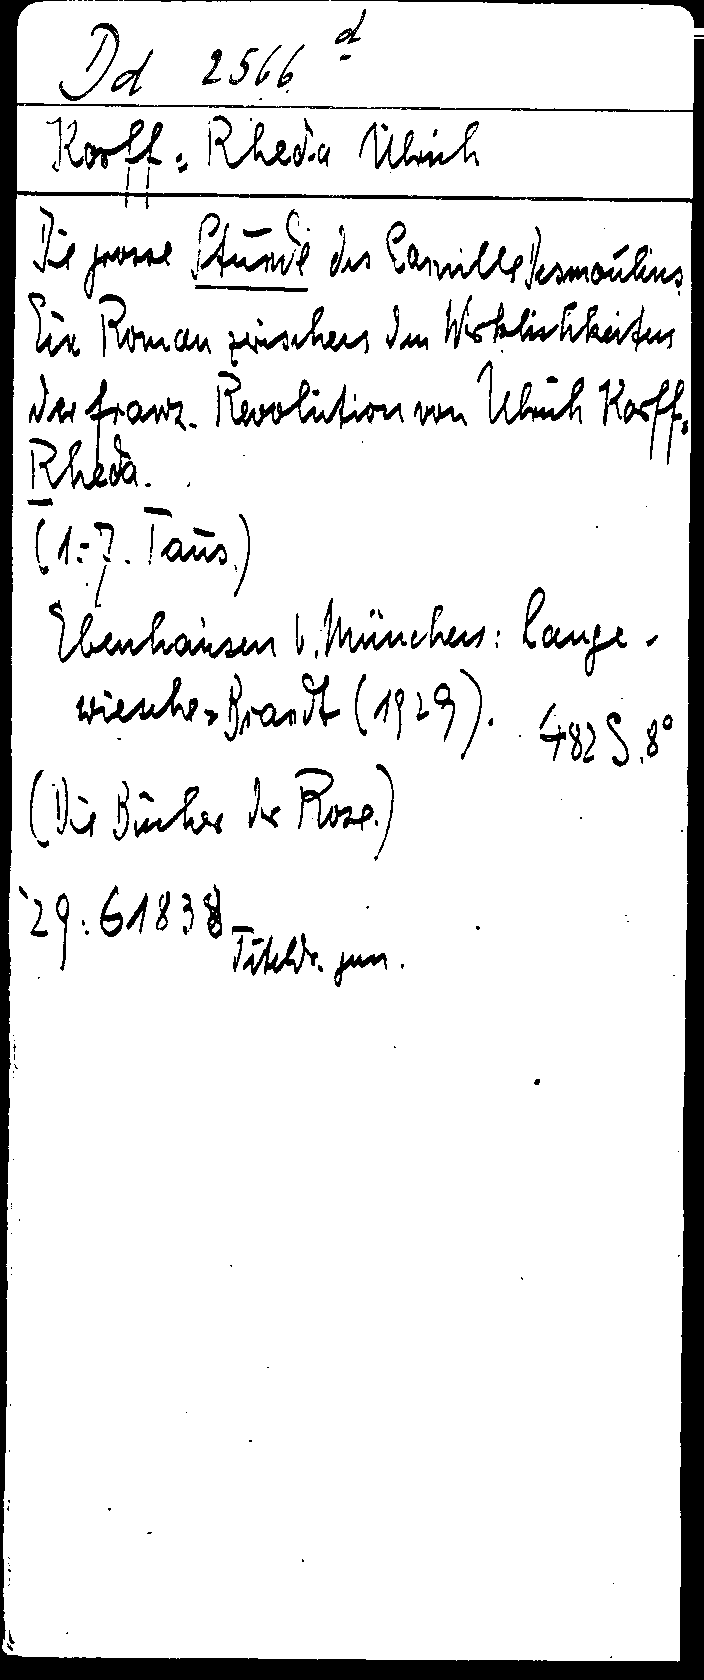 Dd 2566 d
Korff=Rheda Ulrich
Die grosse Stunde des Camille Desmoulins.
Ein Roman zwischen den Wirklichkeiten
der franz. Revolution von Ulrich Korff=
Rheda.
(1.-7. Taus.)
Ebenhausen b. München: Lange-
wiesche=Brandt (1929). 482 S. 8°
(Die Bücher der Rose.)
29. G 183
Titeldr.